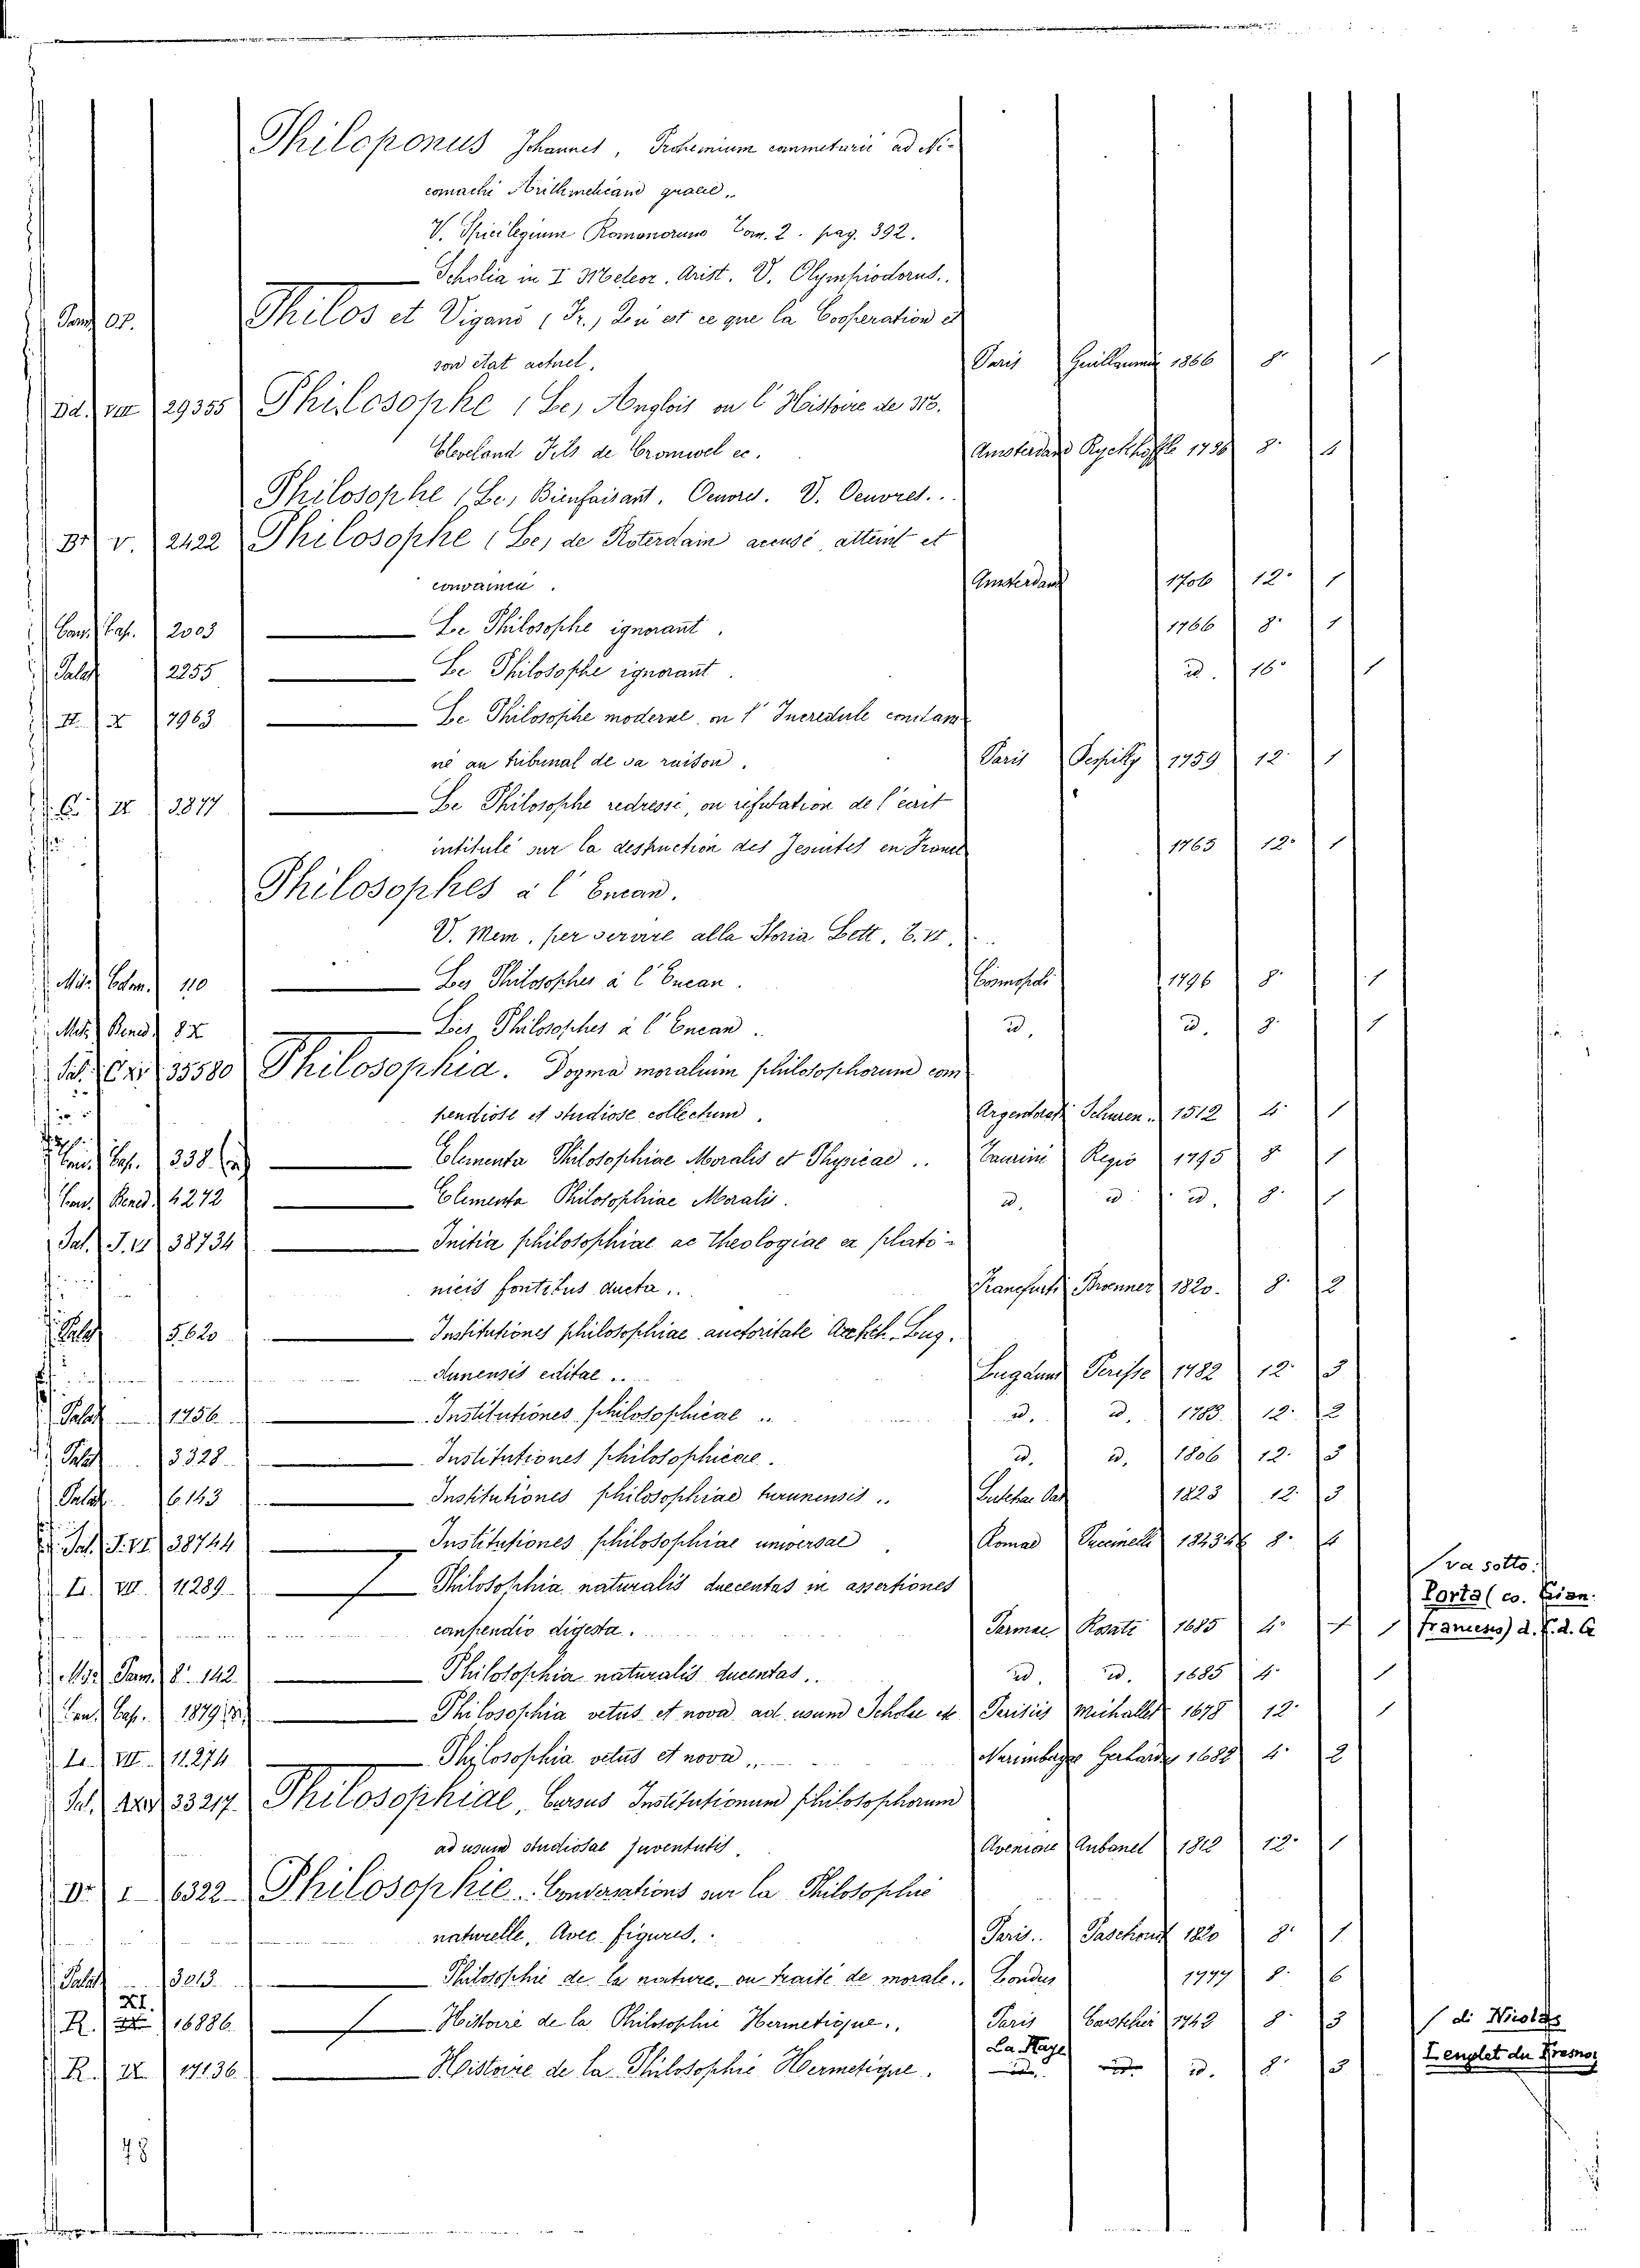 Philoponus Johannes, Prohemium conmetarii ad Ni-
comachi Arithmeticam graece.
V. Spicilegium Romanorum Tom. 2. pag. 392.
Scholia in I Meteor. Arist. V. Olympiodorus.
Philos et Vigano (Fr.)
son etat actuel. Paris Guillaumin 1866 8°
Bd. VIII 29355 Philosophe (Le) Anglois ou l'Histoire de M.
Cleveland Fils de Cromwel ec. Amsterdam 8°
Philosophe (Le) Bienfaisant. Oeuvres. V. Oeuvres.
Br V. 2422 Philosophe (Le) de Roterdam accusé, atteint et
convaincu. Amsterdam 1706 12° 1
Cap. 2003 Le Philosophe ignorant. 1766 8° 1
Palat 2255 Le Philosophe ignorant. id. 16° 1
II. X 7963 Le Philosophe moderne, ou l'Incredule condam
né au tribunal de sa raison. Paris 1759 12° 1
IX 3877 Le Philosophe redressé, ou réfutation de l'écrit
intitulé sur la destruction des Jesuites en France 1765 12° 1
Philosophes à l'Encan.
V. Mem. per servire alla Storia Lett. T. VI.
110 Les Philosophes à l'Encan. Cosmopoli 1796 8° 1
Bened. 82 Les Philosophes à l'Encan. id. id. 8° 1
35580 Philosophia. Dogma moralium philosophorum com
pendiose et studiose collectum. Argentorati Schuren. 1512 4° 1
Cap. 338. Elementa Philosophiae Moralis et Physicae.. Taurini Regio 1795 8 1
Bened. 4272 Elementa Philosophiae Moralis. id. id. id. 8° 1
Sal. J. VI 38734 Initia philosophiae ac theologiae ex plato-
nicis fontibus ducta.. Francfurti Broenner 1820. 8° 2
Palat 5.620 Institutiones philosophiae auctoritate Archch. Lug.
dunensis editae.. Lugduni Perisse 1782 12° 3
Palat 1756 Institutiones philosophicae.. id. id. 1783. 12° 2
Palat 3328 Institutiones philosophicae. id. id. 1806 12° 3
Palat 6.143 Institutiones philosophiae turunensis.. 1823 12° 3
Sal. J. VI 38744 Institutiones philosophiae universae. Romae Puccinelli 8°
L. VIII. 11289 Philosophia naturalis ducentas in assertiones
conpendio digesta. Parmae Rosati 1685 4° 1 (va sotto:
Porta (co. Gian.
francesco) d. f. d. C
Parm. 8° 142 Philosophia naturalis ducentas.. id. id. 1685 4° 1
Cap. 1879 Philosophia vetus et nova ad usum Scholae etc Parisiis Michallet 1678 12° 1
L. VII. 11274 Philosophia vetus et nova.. Norimbergae 1682 4° 2
33217 Philosophiae, Cursus Institutionum philosophorum
ad usum studiosae juventutis. Avenione Aubanel 12° 1
Dr. I 6322 Philosophie. Conversations sur la Philosophie
naturelle, Avec figures. Paris. Paschoud 1820 8° 1
Palat 3013 Philosophie de la nature, ou traité de morale.. Londres 1777 8° 6
R. XI. 16886 Histoire de la Philosophie Hermetique.. Paris 1742 8° 3 (di Nicolas
Lenglet du Fresnoy
R. IX. 17136 Histoire de la Philosophie Hermetique. La Haye id. 8° 3
78